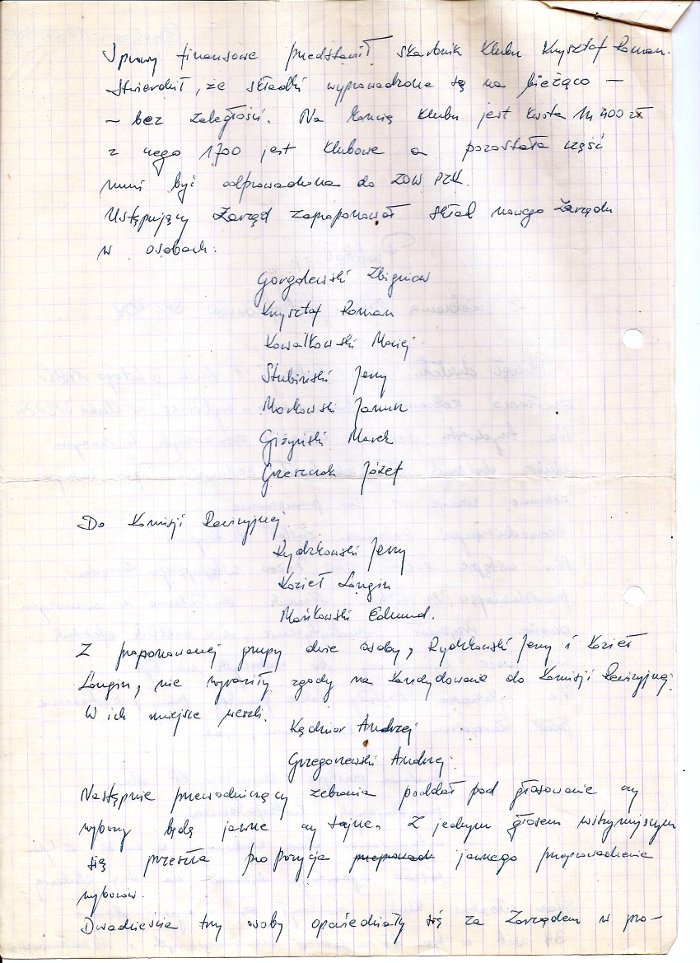 Sprawy finansowe przedstawił skarbnik klubu Krysztof Roman.
Stwierdził, że składki wyprowadzone są na bieżąco –
– bez zaległości. Na koncie klubu jest kwota 14 400 zł
z czego 1700 jest klubowe a pozostała część
musi być odprowadzona do ZOW PZK.
Ustępujący Zarząd zaproponował skład nowego Zarządu
w osobach.
Gorgolewski Zbigniew
Krysztof Roman
Kowalkowski Maciej
Stubiński Jerzy
Markowski Janusz
Giżyński Marek
Grześczak Józef
Do Komisji Rewizyjnej
Rydzkowski Jerzy
Kozieł Longin
Mańkowski Edmund.
Z proponowanej grupy dwie osoby, Rydzkowski Jerzy i Kozieł
Longin, nie wyraziły zgody na kandydowanie do Komisji Rewizyjnej.
W ich miejsce weszli.
Kędzior Andrzej
Grzegorzewski Andrzej.
Następnie przewodniczący zebrania poddał pod głosowanie czy
wybory będą jawne czy tajne. Z jednym głosem wstrzymującym
się przeszła propozycja przeprowadz jawnego przeprowadzenia
wyborów.
Dwadzieścia trzy osoby opowiedziały się za Zarządem w pro–